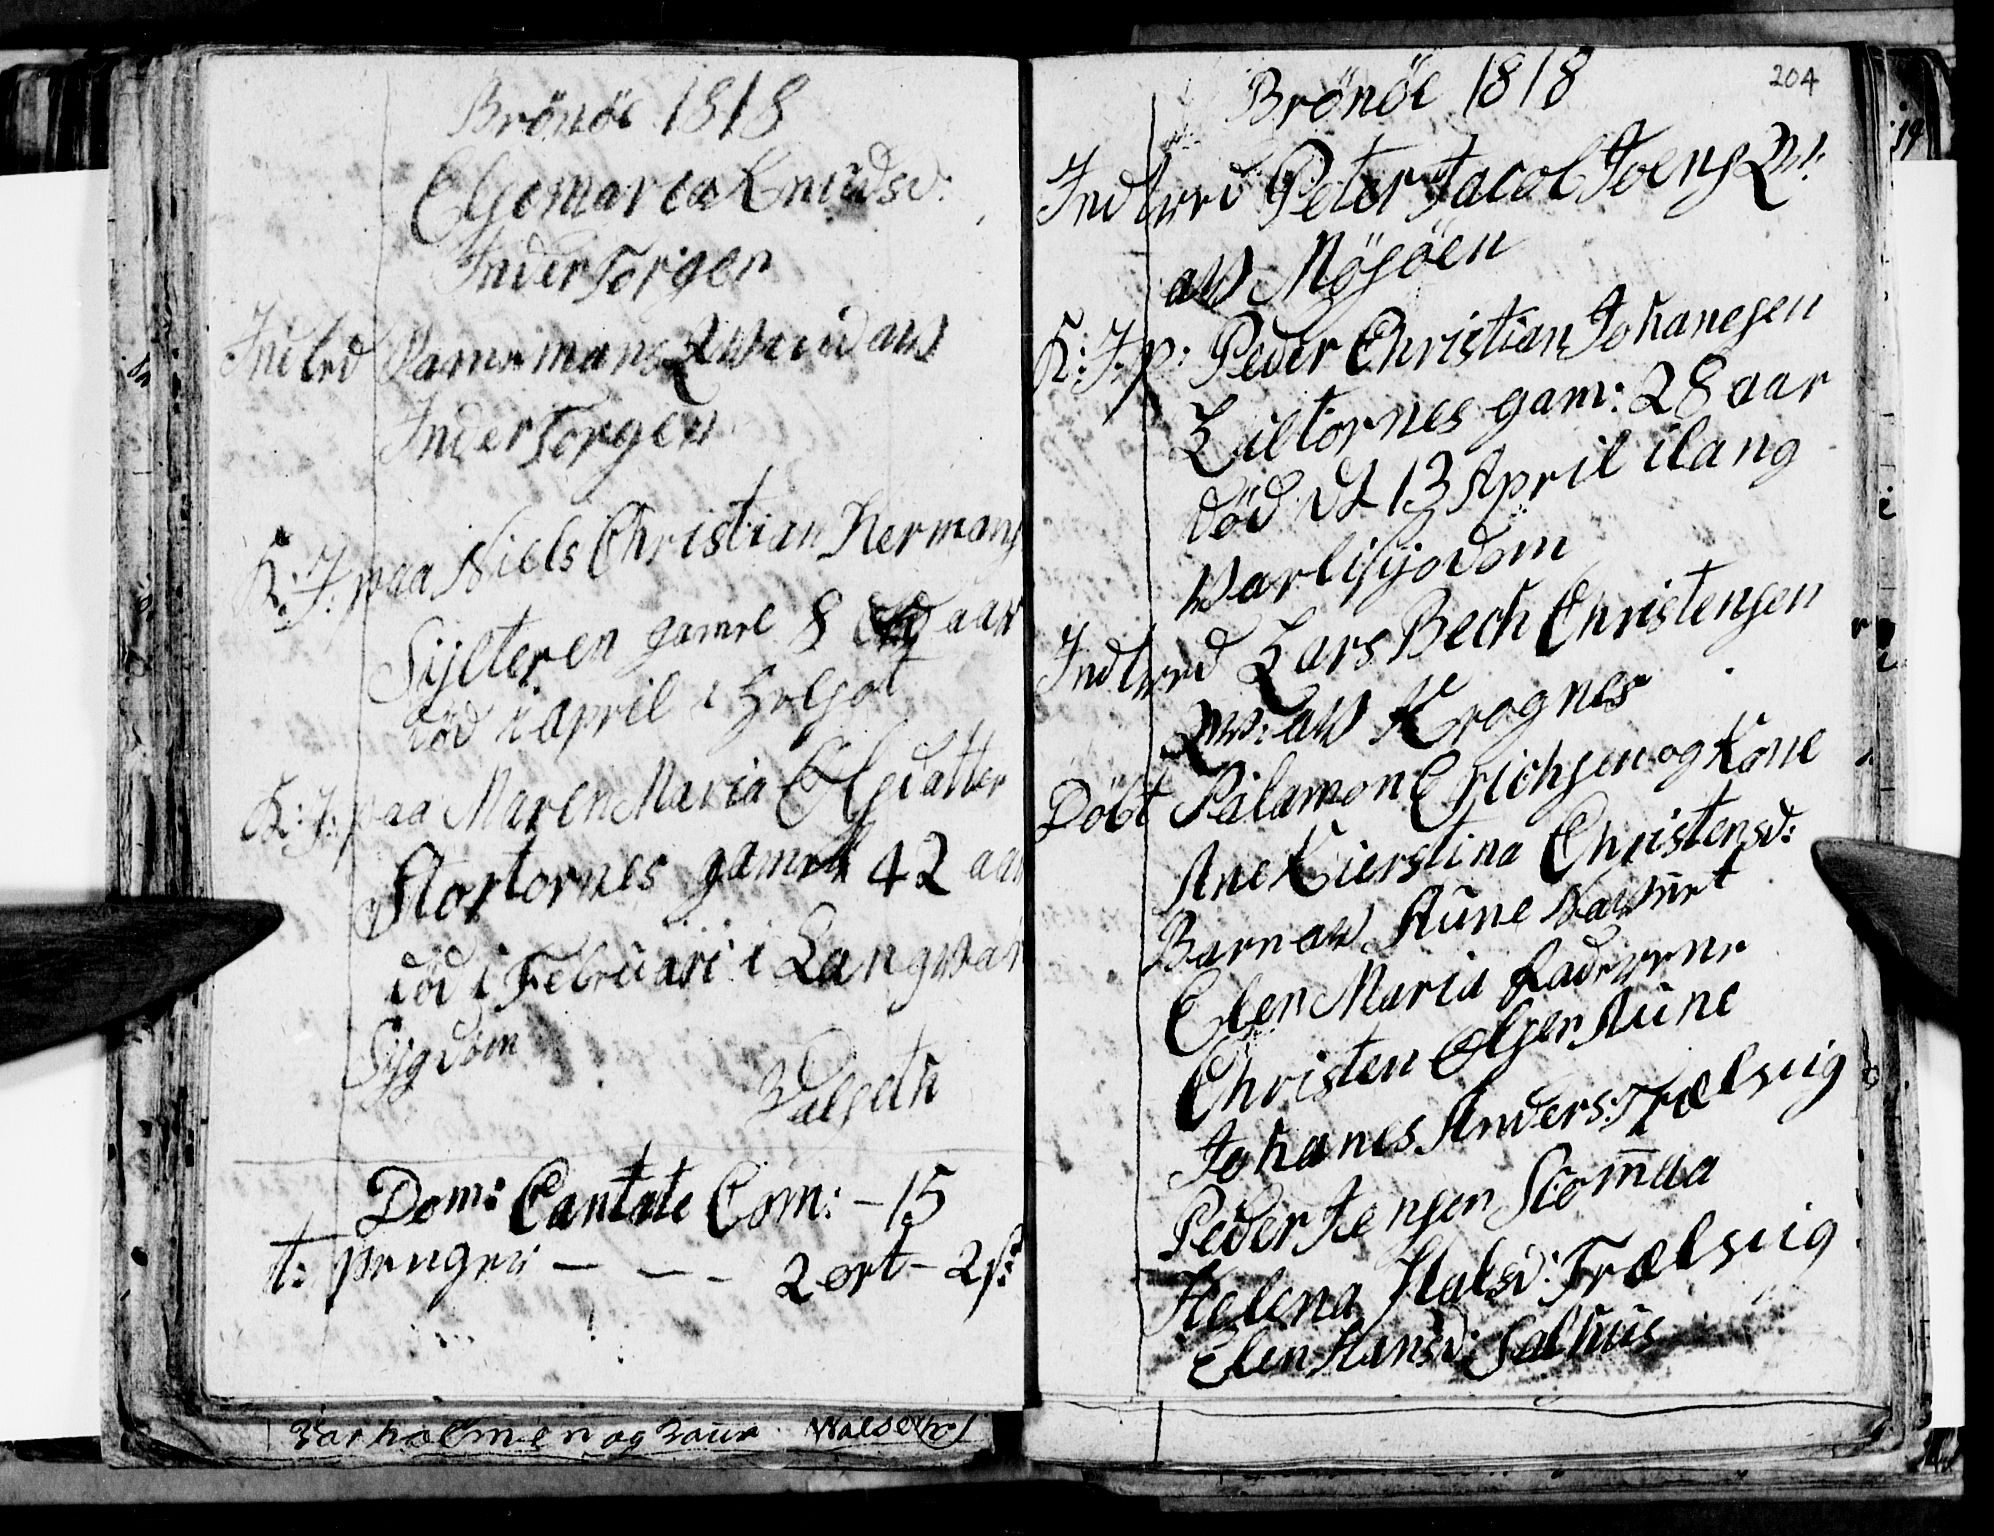 Brönöe 1818
Elgemarca Knudsd:
Inder Torgen
Indled Damermans Qwind aw
Inder Torgen
K: J: paa Niels Christian Hermans
Sylteren gamel 8 aar
död i april i
K: J: paa Maren Maria Olsdatter
Stortornes gamel 42 aar
död i Februari i Langwar
Sygdom
Walseth
Dom: Cantate Com: - 15
t: penger — — - 2 ort - 2 s:
Varholmen og Waldseth
Brönöe 1818
204
Indleed Peter Jacob Joens Qw:
aw Möyöen
K: J: p: Peder Christian Johanesen
Liltornes gam: 28 aar
död dt 13 April ilang
warlisygodom
Indleed Lars Bech Christensen
Qw: aw Krognes
Döbt Palamon Erichsen og Kone
Ane Kierstina Christensd:
Barn aw Aune Nawnet
Elen Maria Fadderne
Christen Olsen Aune
Johanes Anders: Trælwiig
Peder Jensen Stomaa
Helena Halsd: Trælwiig
Elen Hansd: Salhus